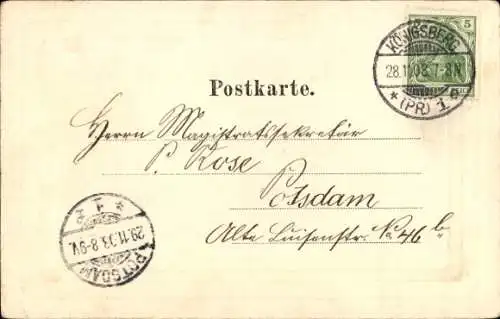 5
KÖNIGSBERG
28.11.03. 7-8N
* (PR) 1 e
Postkarte.
Herrn Magistratssekretär
P. Rose
Potsdam
Alte Luisenstr. No 46 b.
29.11.03. 8-9V.
POTSDAM